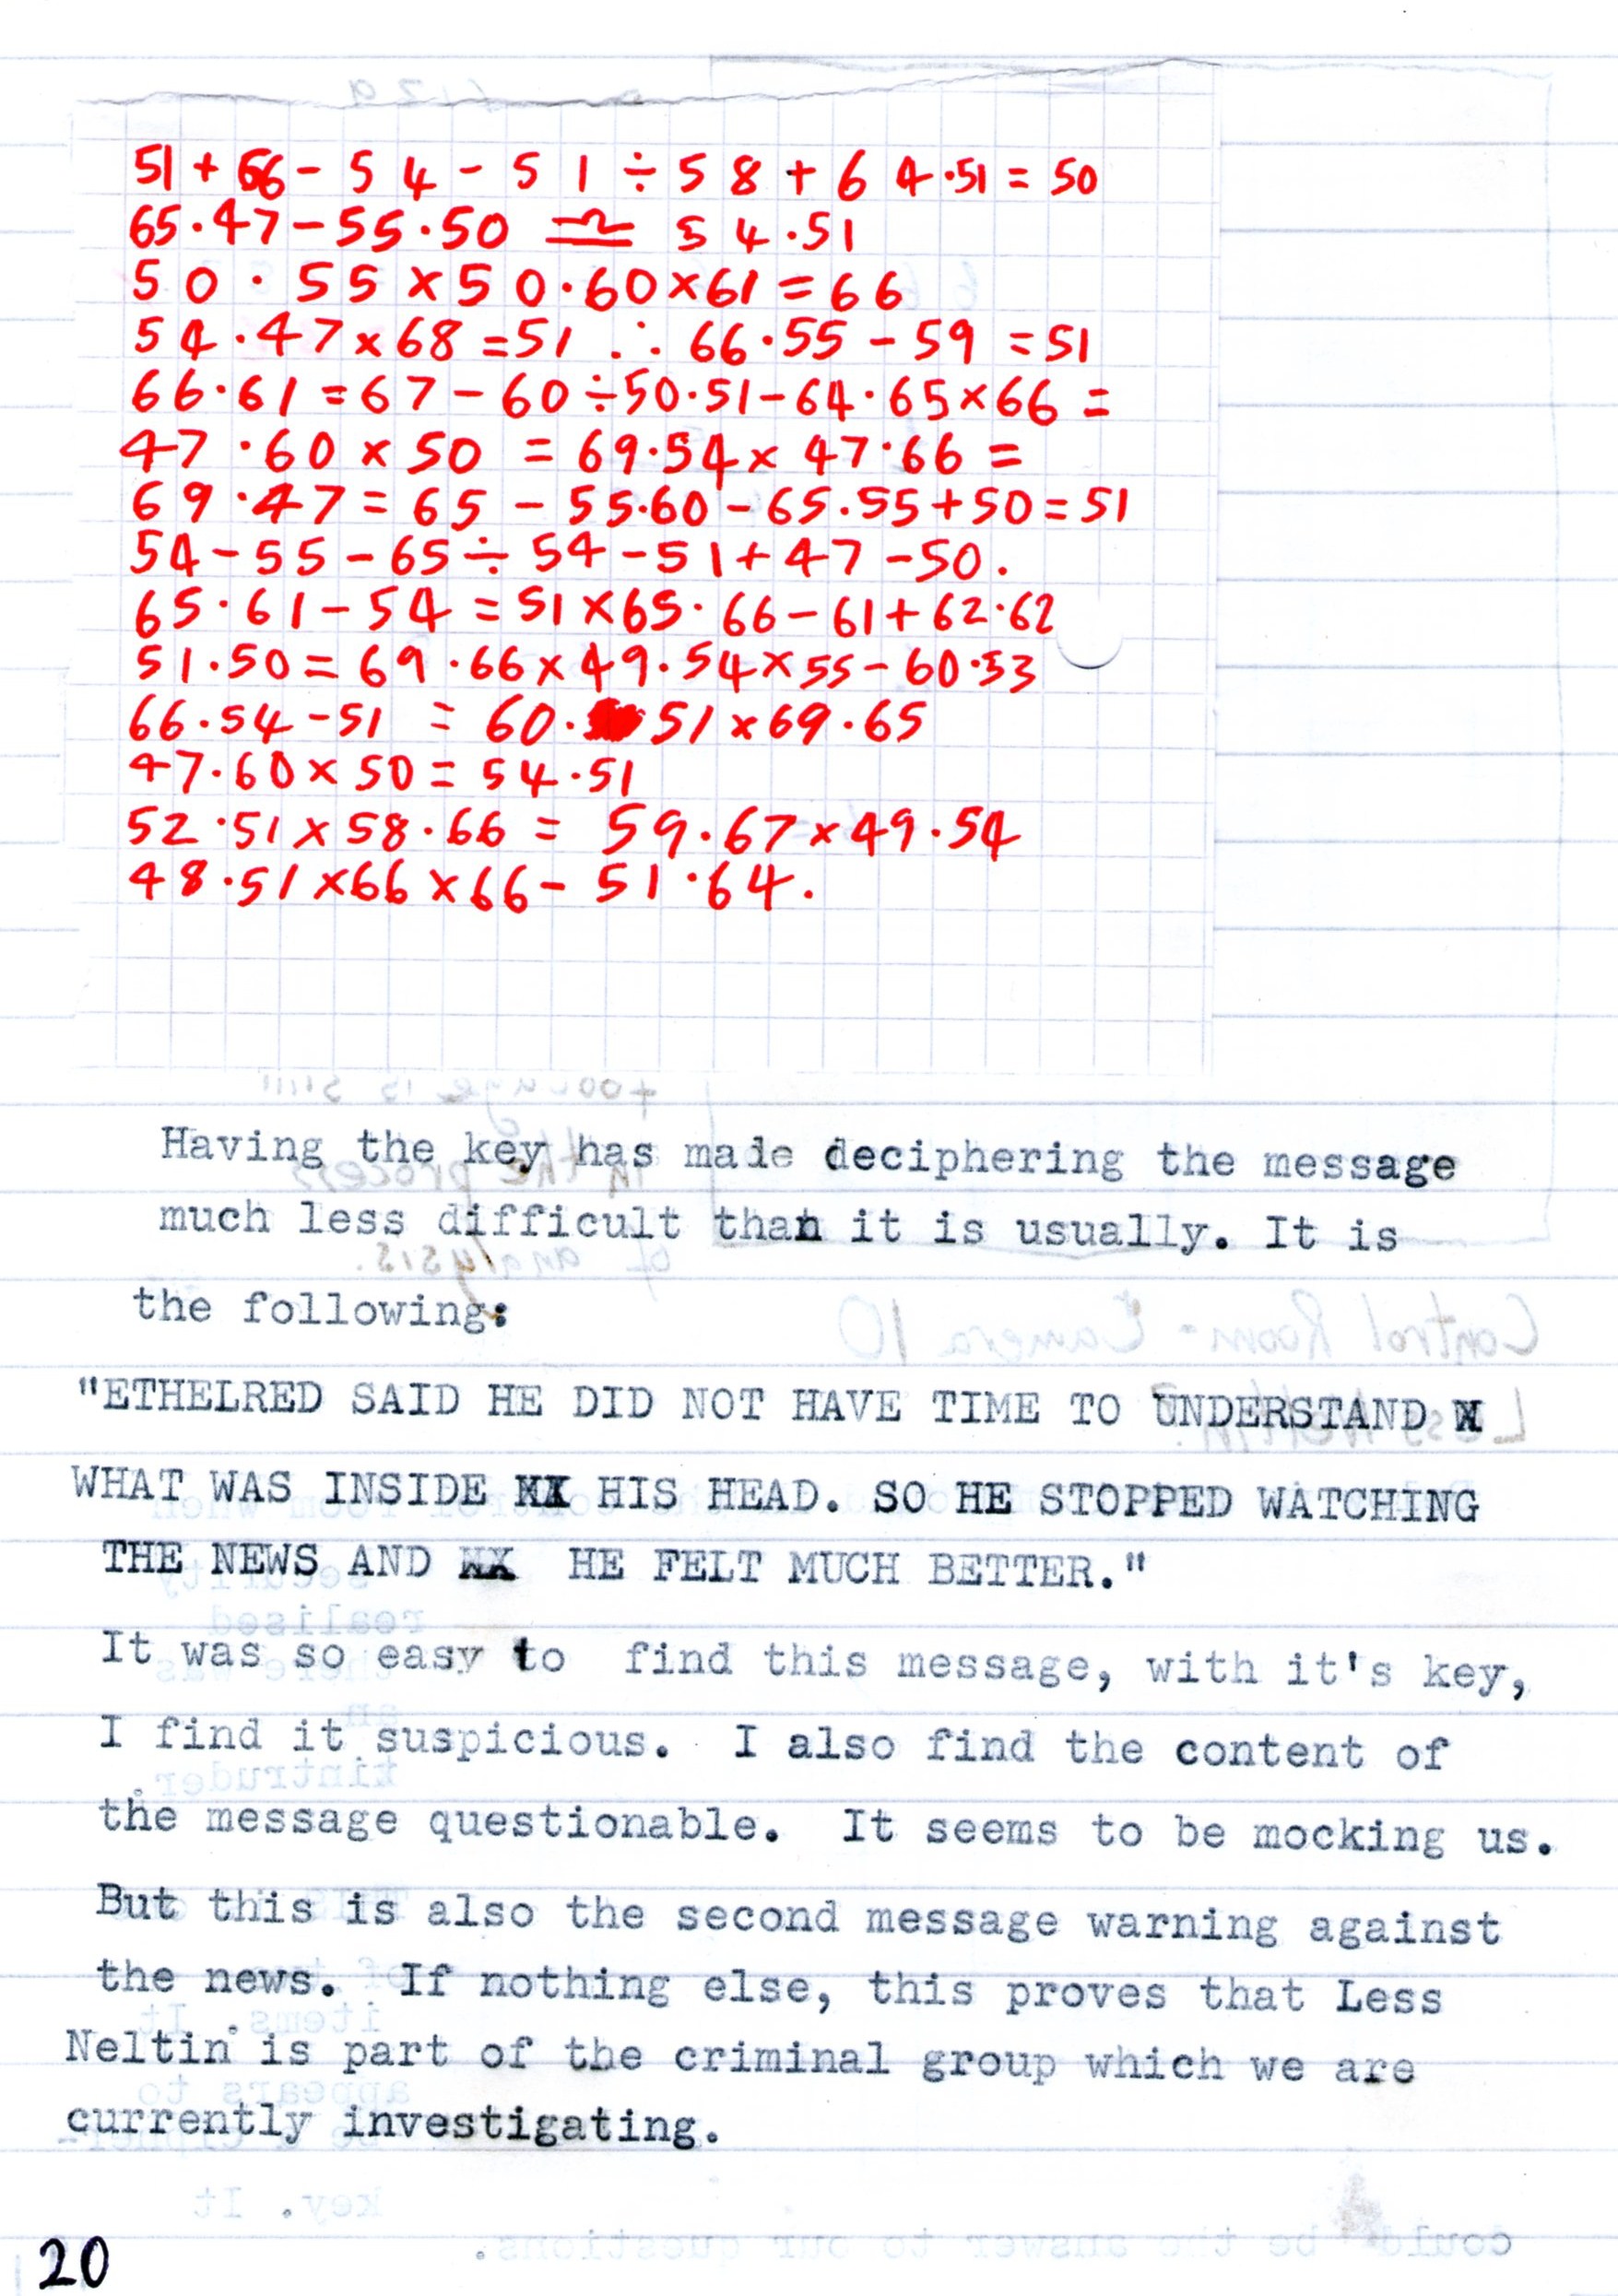 51 + 66 - 54 - 51 ÷ 58 + 64·51 = 50
65·47 - 55·50 ≃ 54·51
50·55 × 50·60 × 61 = 66
54·47 × 68 = 51 ∴ 66·55 - 59 = 51
66·61 = 67 - 60 ÷ 50·51 - 64·65 × 66 =
47·60 × 50 = 69·54 × 47·66 =
69·47 = 65 - 55·60 - 65·55 + 50 = 51
54 - 55 - 65 ÷ 54 - 51 + 47 - 50.
65·61 - 54 = 51 × 65·66 - 61 + 62·62
51·50 = 69·66 × 49·54 × 55 - 60·53
66·54 - 51 = 60·51 × 69·65
47·60 × 50 = 54·51
52·51 × 58·66 = 59·67 × 49·54
48·51 × 66 × 66 - 51·64.
Having the key has made deciphering the message
much less difficult than it is usually. It is
the following:
"ETHELRED SAID HE DID NOT HAVE TIME TO UNDERSTAND
WHAT WAS INSIDE HIS HEAD. SO HE STOPPED WATCHING
THE NEWS AND HE FELT MUCH BETTER."
It was so easy to find this message, with it's key,
I find it suspicious. I also find the content of
the message questionable. It seems to be mocking us.
But this is also the second message warning against
the news. If nothing else, this proves that Less
Neltin is part of the criminal group which we are
currently investigating.
20